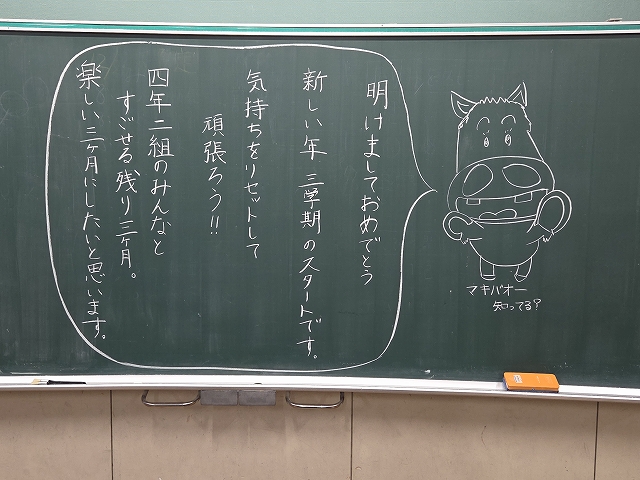 明けましておめでとう
新しい年 三学期のスタートです。
気持ちをリセットして
頑張ろう!!
四年二組のみんなと
すごせる残り三ヶ月。
楽しい三ヶ月にしたいと思います。
マキバオー
知ってる?